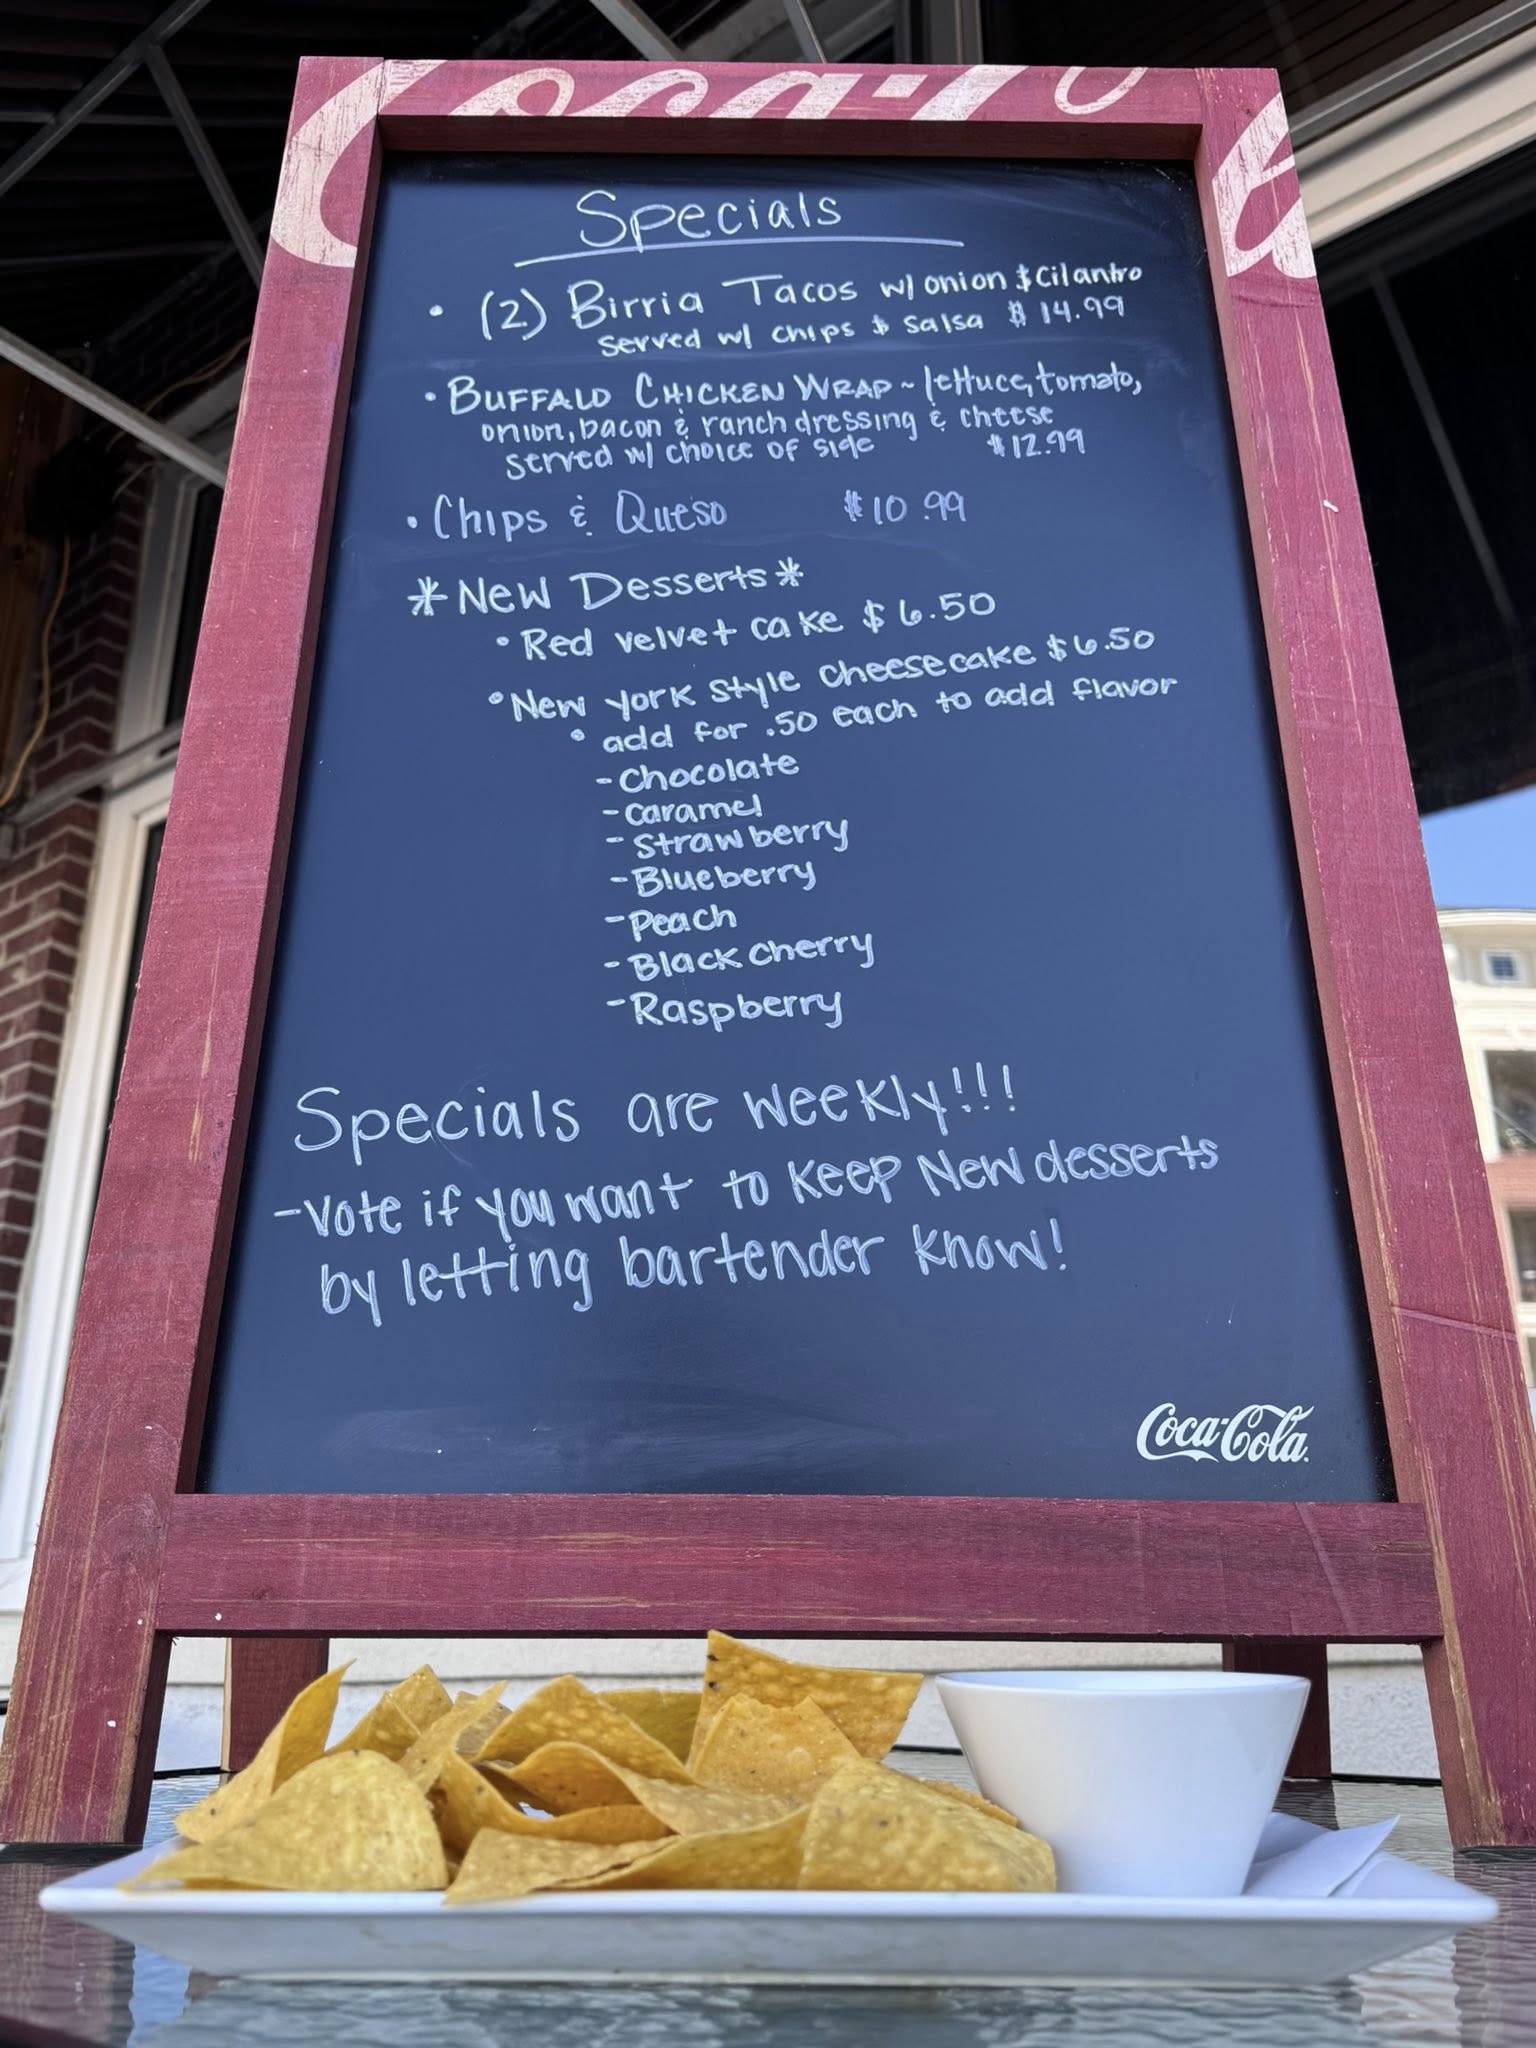 Coca-Cola
Specials
• (2) Birria Tacos w/ onion & Cilantro
served w/ chips & salsa $14.99
• BUFFALO CHICKEN WRAP ~ lettuce, tomato,
onion, bacon & ranch dressing & cheese
served w/ choice of side $12.99
• Chips & Queso $10.99
*New Desserts*
• Red velvet cake $6.50
• New york style cheesecake $6.50
• add for .50 each to add flavor
- Chocolate
- caramel
- Strawberry
- Blueberry
- Peach
- Black cherry
- Raspberry
Specials are weekly!!!
- Vote if you want to keep New desserts
by letting bartender know!
Coca-Cola